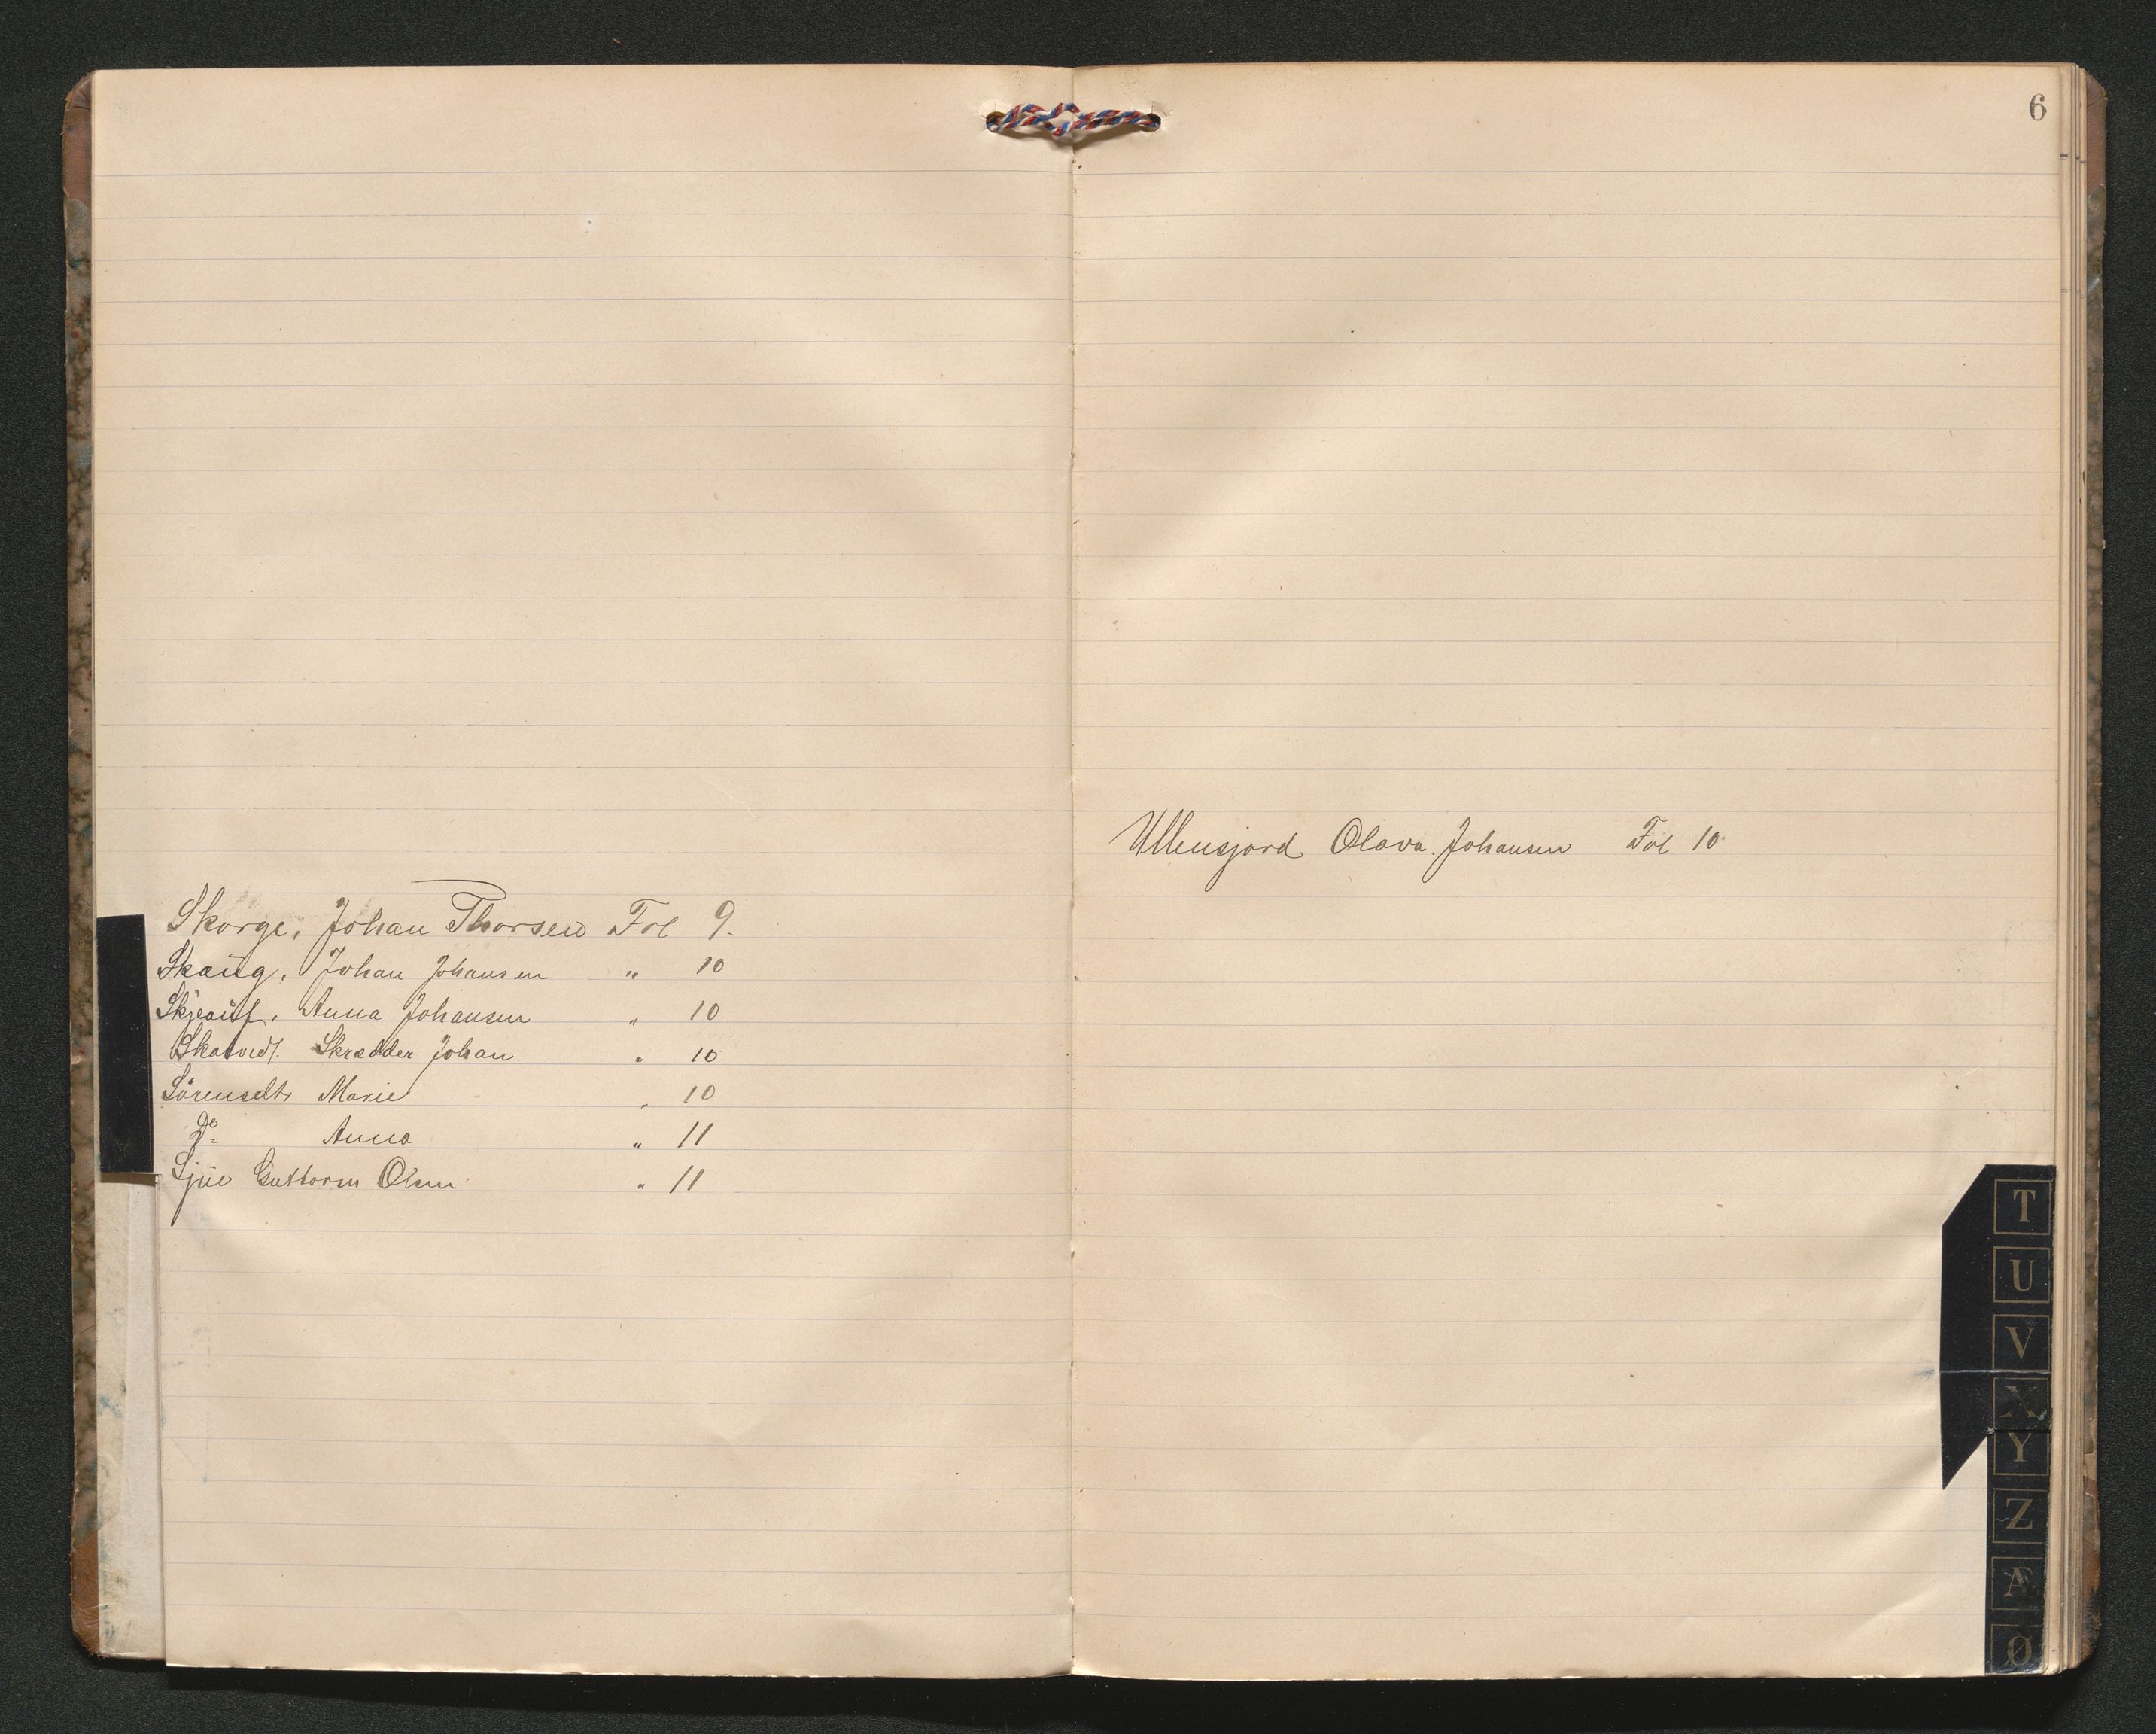 6
Skorge, Johan Thorsen Fol 9.
Skaug, Johan Johansen " 10
Anna Johansen " 10
Skrædder Johan " 10
Marie " 10
Do Anna " 11
Guttorm Olsen " 11
Ullensjord Olava Johansen Fol 10
T
U
V
X
Y
Z
Æ
Ø